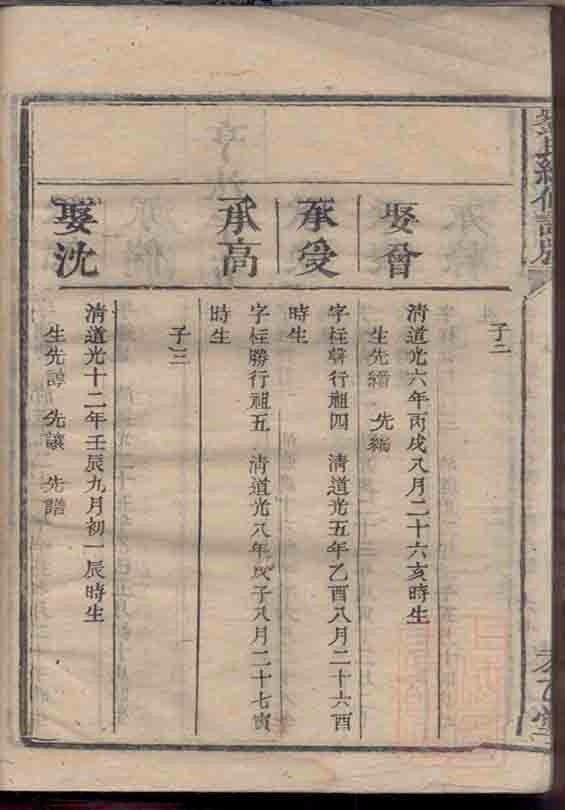 子二
娶曾
清道光六年丙戌八月二十六亥時生
生先縉 先綿
承受
字桂馨行祖四 清道光五年乙酉八月二十六酉
時生
承高
字桂勝行祖五 清道光八年戊子八月二十七寅
時生
子三
娶沈
清道光十二年壬辰九月初一辰時生
先讓 先譜